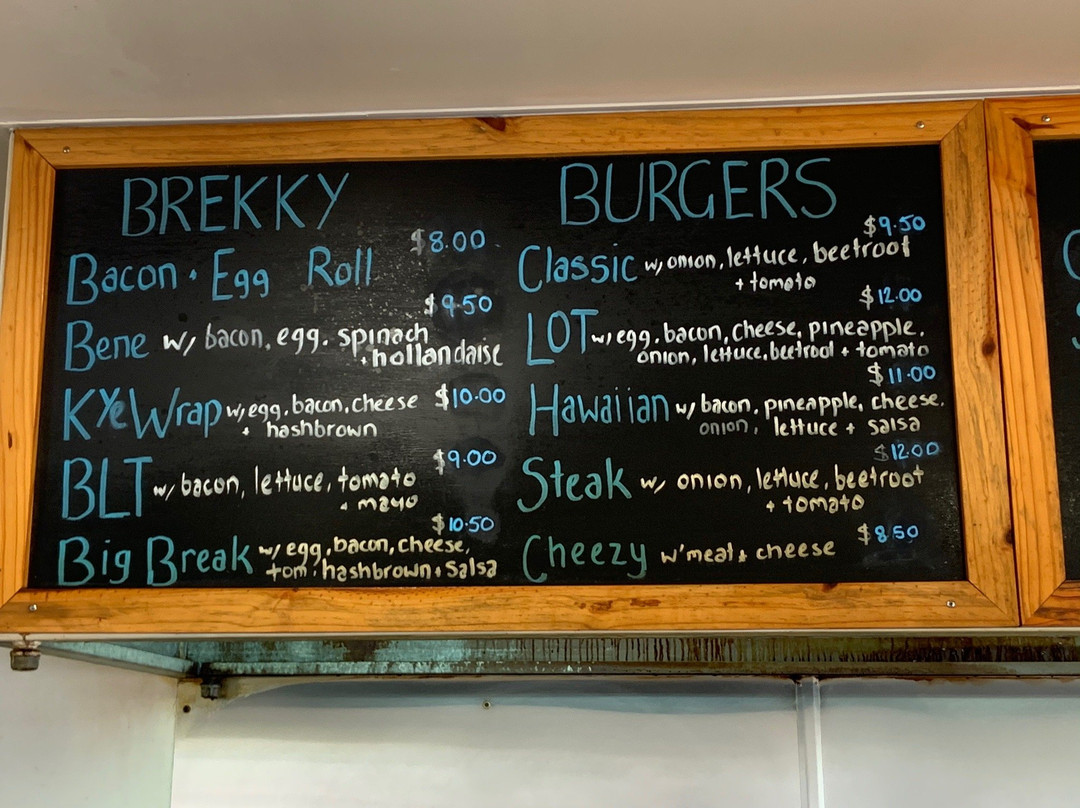 BREKKY
$8.00
Bacon + Egg Roll
$9.50
Bene w/ bacon, egg, spinach
+ hollandaise
KYeWrap w/egg, bacon, cheese $10.00
+ hashbrown
$9.00
BLT w/ bacon, lettuce, tomato
+ mayo
$10.50
Big Break w/ egg, bacon, cheese,
tom, hashbrown + salsa
BURGERS
$9.50
Classic w/ onion, lettuce, beetroot
+ tomato
$12.00
LOT w/ egg, bacon, cheese, pineapple,
onion, lettuce, beetroot + tomato
$11.00
Hawaiian w/ bacon, pineapple, cheese,
onion, lettuce + salsa
$12.00
Steak w/ onion, lettuce, beetroot
+ tomato
$8.50
Cheezy w' meat + cheese